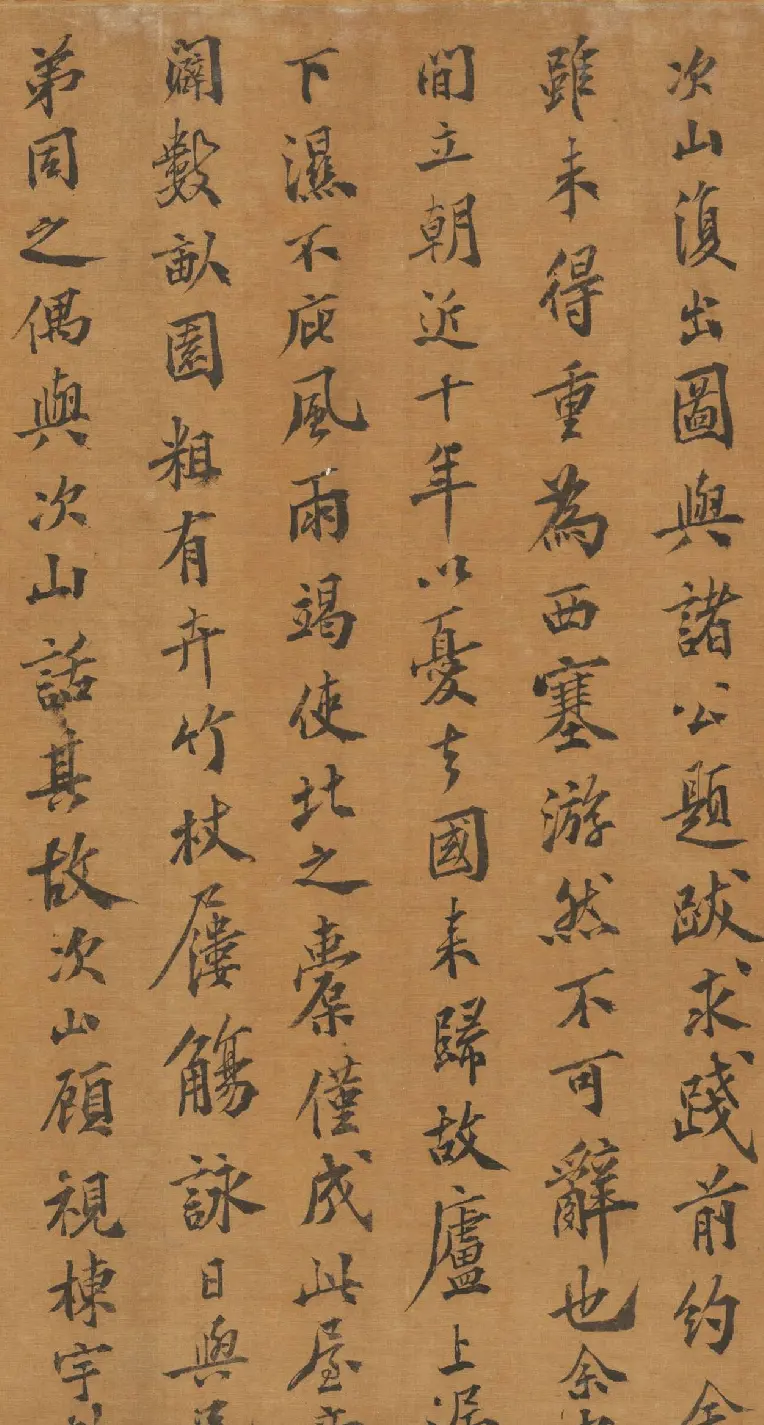 次山復出圖與諸公題跋求踐前約余
雖未得重為西塞游然不可辭也余
間立朝近十年以憂去國來歸故廬上漏
下濕不庇風雨竭使北之橐僅成此屋
闢數畝園粗有卉竹杖屨觴詠日與
弟同之偶與次山話其故次山顧視棟宇